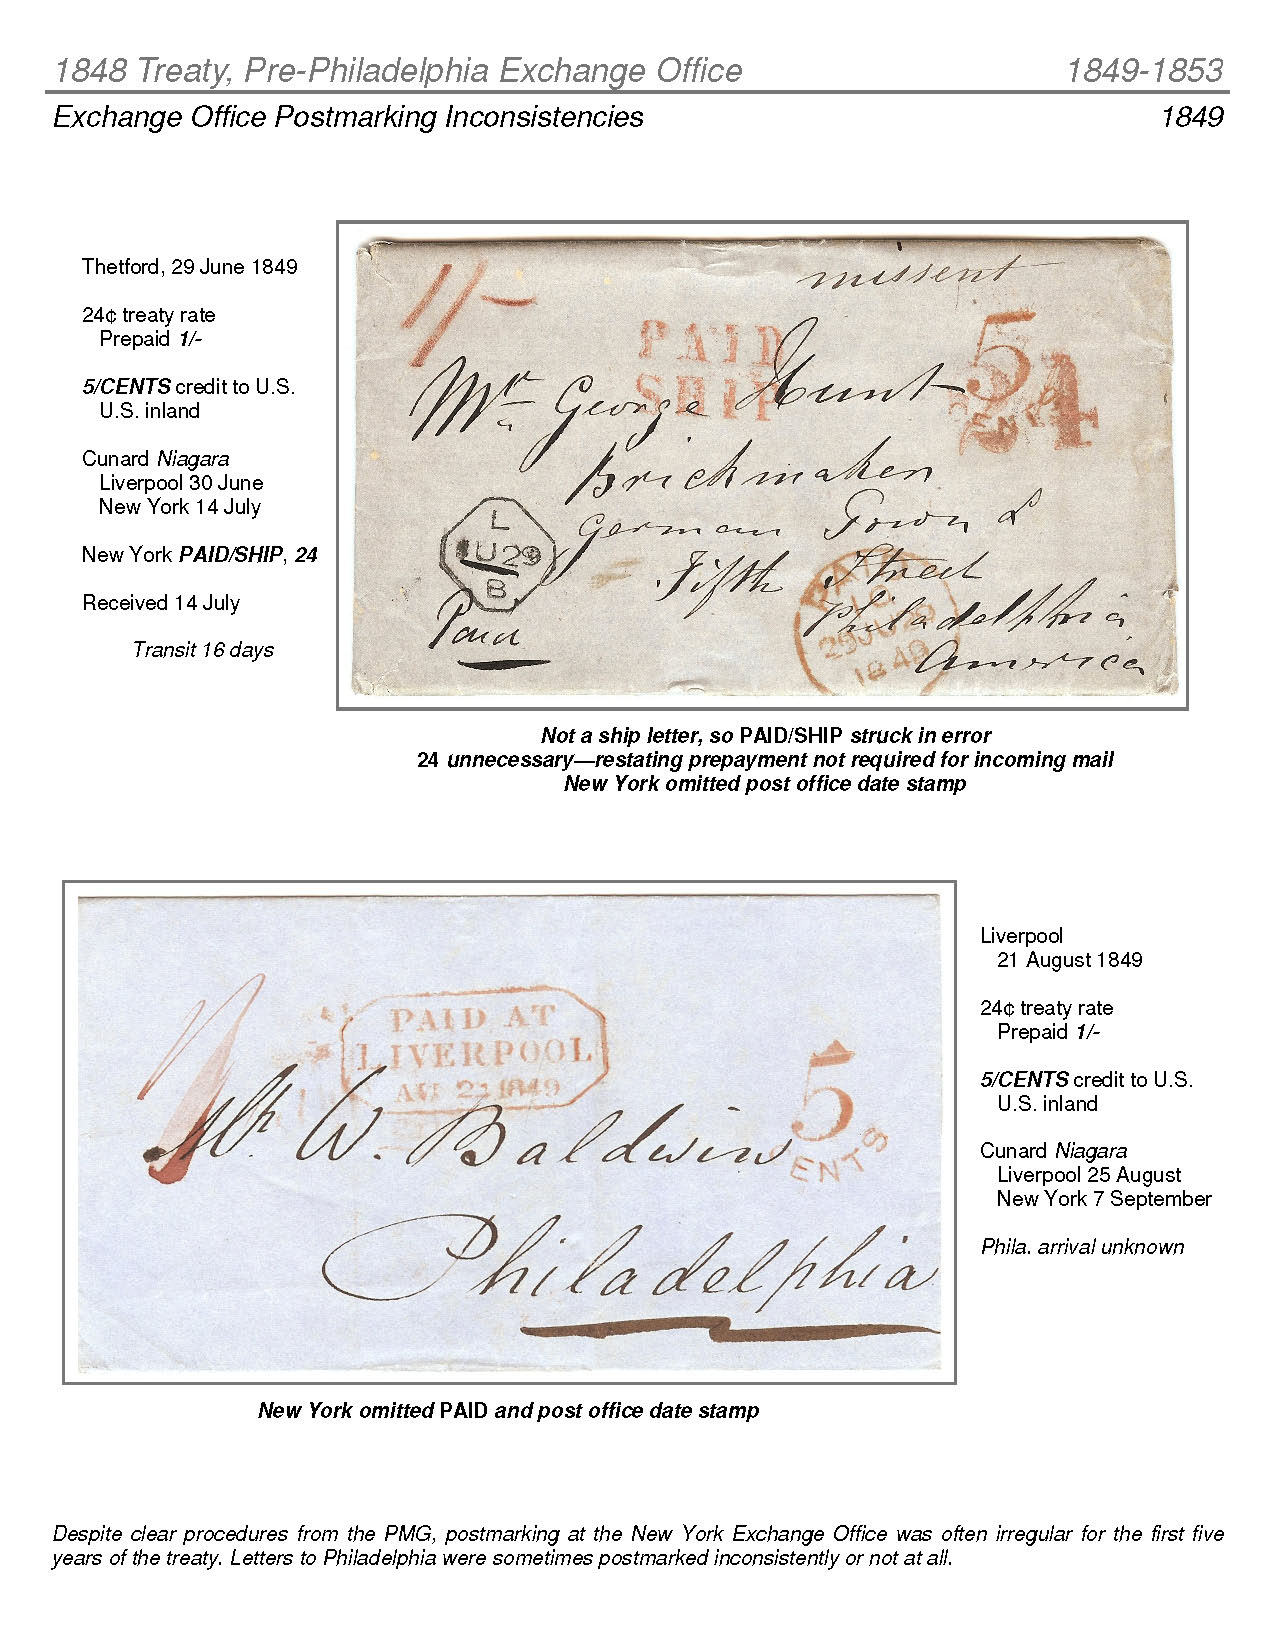 1848 Treaty, Pre-Philadelphia Exchange Office 1849-1853
Exchange Office Postmarking Inconsistencies 1849
Thetford, 29 June 1849
24¢ treaty rate
Prepaid 1/-
5/CENTS credit to U.S.
U.S. inland
Cunard Niagara
Liverpool 30 June
New York 14 July
New York PAID/SHIP, 24
Received 14 July
Transit 16 days
1/-
missent
PAID
SHIP
5
CENTS
24
Mr George Hunt
Brickmaker
German Town &
Fifth Street
Philadelphia
America
L
JU29
B
Paid
PAID
29 JU 29
1849
Not a ship letter, so PAID/SHIP struck in error
24 unnecessary—restating prepayment not required for incoming mail
New York omitted post office date stamp
PAID AT
LIVERPOOL
AU 21 1849
5
CENTS
Mr W. Baldwin
Philadelphia
Liverpool
21 August 1849
24¢ treaty rate
Prepaid 1/-
5/CENTS credit to U.S.
U.S. inland
Cunard Niagara
Liverpool 25 August
New York 7 September
Phila. arrival unknown
New York omitted PAID and post office date stamp
Despite clear procedures from the PMG, postmarking at the New York Exchange Office was often irregular for the first five
years of the treaty. Letters to Philadelphia were sometimes postmarked inconsistently or not at all.